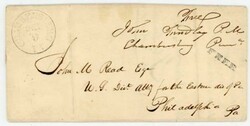 Free
John Findlay P.M
Chambersburg Penn
FREE
John M Read Esq
U. S. Dist Atty for the Eastern dis of Pa
Philadelphia
Pa